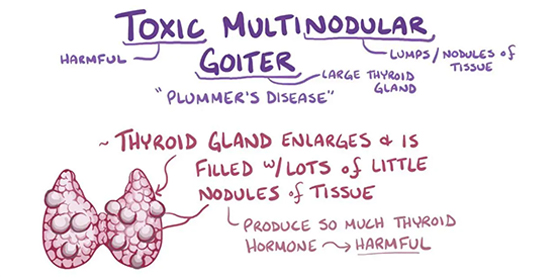 TOXIC MULTINODULAR
HARMFUL
LUMPS/NODULES of
TISSUE
GOITER
LARGE THYROID
GLAND
"PLUMMER'S DISEASE"
~ THYROID GLAND ENLARGES & IS
FILLED w/ LOTS of LITTLE
NODULES of TISSUE
PRODUCE SO MUCH THYROID
HORMONE → HARMFUL